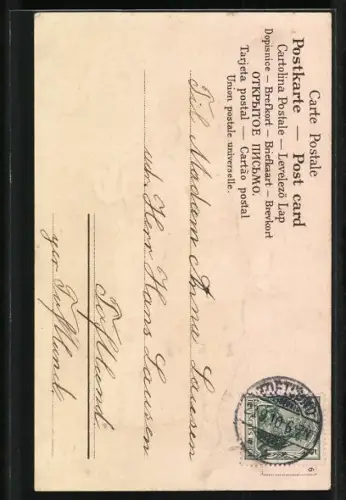 Carte Postale
Postkarte — Post card
Cartolina Postale — Levelező Lap
Dopisnice — Brefkort — Briefkaart — Brevkort
ОТКРЫТОЕ ПИСЬМО.
Tarjeta postal — Cartão postal
Union postale universelle.
Til Madam Anne Lausen
Herr Hans Lausen
Toftlund
per Toftlund
6